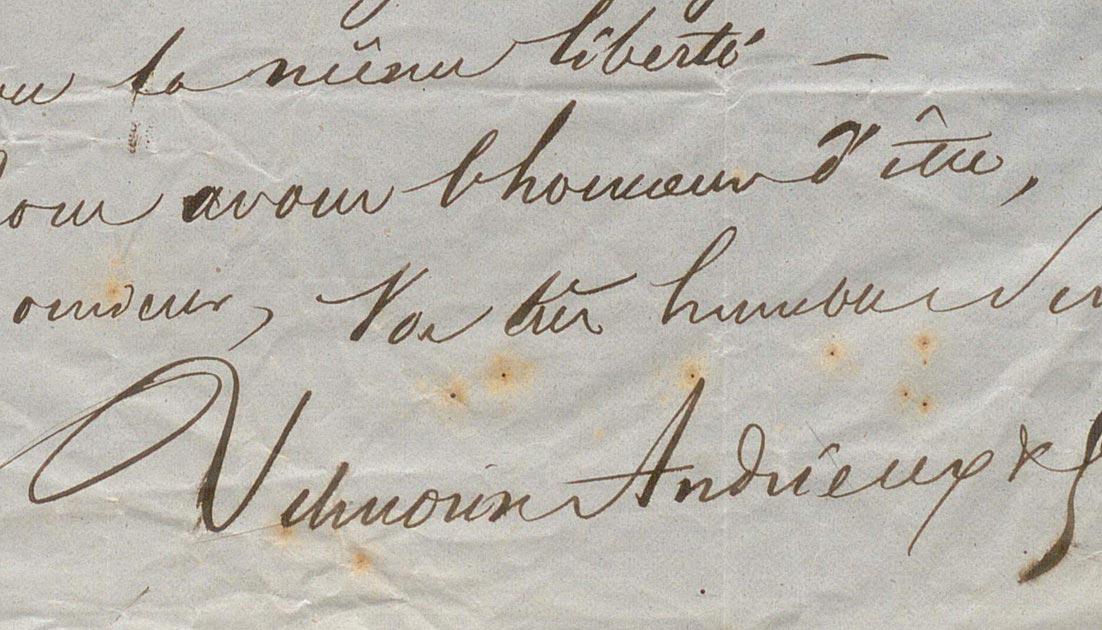 la même liberté —
avons l'honneur d'être,
Monsieur, Vos très humbles
Vilmorin Andrieux &